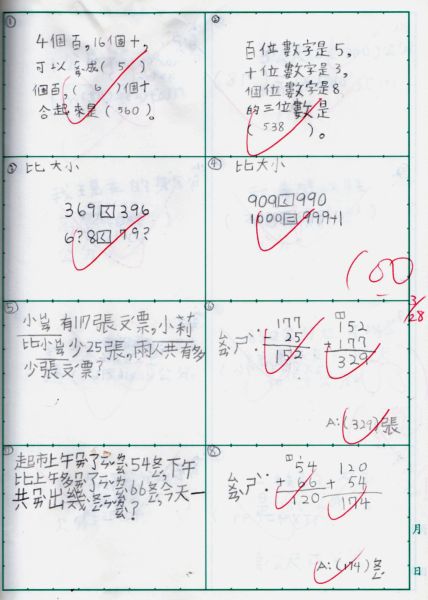 ①
4個百,16個十,
可以
(5)
個百,(6)個十
合起來是(560)。
②
百位數字是5,
十位數字是3,
個位數字是8
的三位數是
(538)。
③ 比大小
369<396
6?8<79?
④ 比大小
909<990
1000=999+1
100
3/28
⑤
有117張郵票,小莉
少25張,兩人共有多
少張郵票?
⑥
177
25
152
152
+177
329
A:(329)張
⑦
上午
54條,下午
比上午多
66條,今天一
共
出幾條
?
⑧
54
+66
120
120
+54
174
A:(174)條
月
日